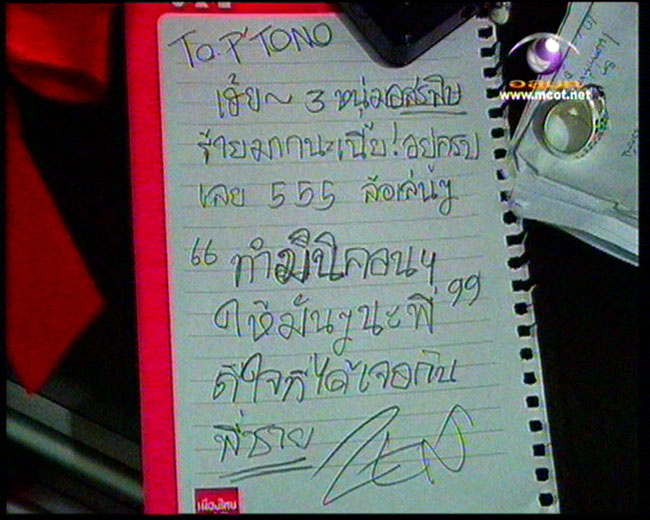 To. P' TONO
เฮ้ย~ 3 หนุ่มอสรพิษ
ร้ายมากนะเนี่ย! อยู่ครบ
เลย 555 ล้อเล่นๆ
“ทำมินิคอนฯ
ให้มันๆนะพี่”
ดีใจที่ได้เจอกัน
พี่ชาย
เมืองไทย
อสมท
www.mcot.net